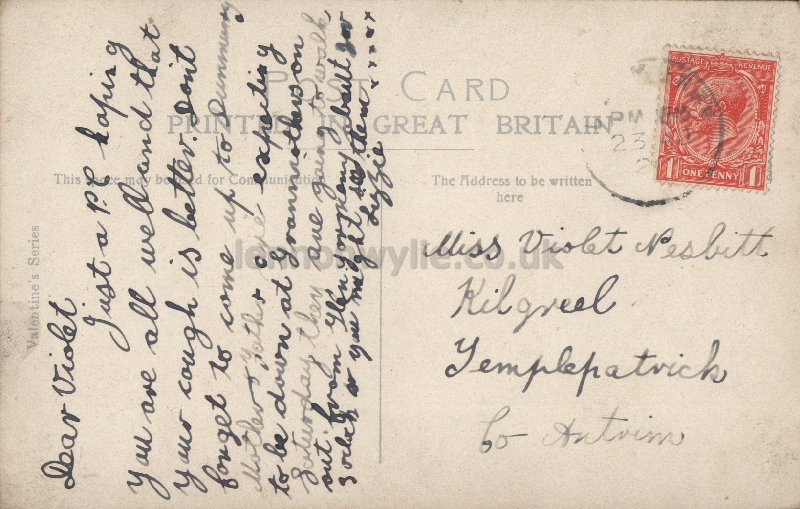 POST CARD
PRINTED IN GREAT BRITAIN
This space may be used for Communication
The Address to be written
here
Valentine's Series
POSTAGE REVENUE
1 ONE PENNY 1
PM
23
Dear Violet
Just a P.C. hoping
you are all well and that
your cough is better. Don't
forget to come up to Dunmurry
Mother & Father are expecting
to be down at Grannmothers on
Saturday they are going to walk
out from Glengormley about
3 oclock so you might see them
Lizzie x x x x x
Miss Violet Nesbitt
Kilgreel
Templepatrick
Co Antrim
lennonwylie.co.uk